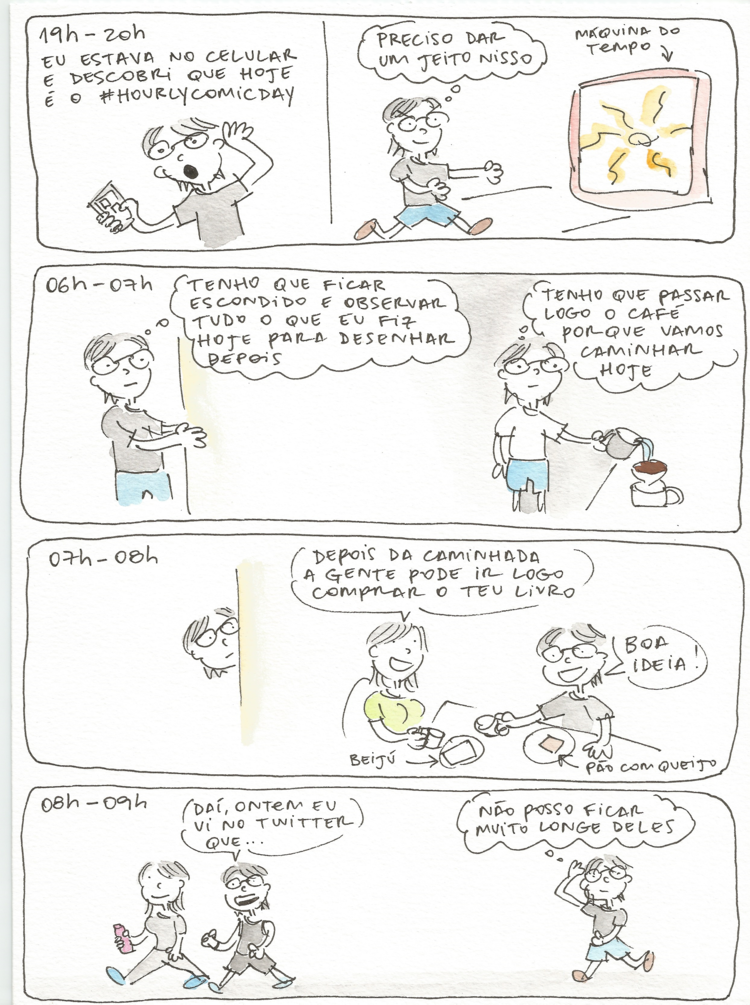 19h - 20h
EU ESTAVA NO CELULAR
E DESCOBRI QUE HOJE
É O #HOURLYCOMICDAY
PRECISO DAR
UM JEITO NISSO
MÁQUINA DO
TEMPO
06h - 07h
TENHO QUE FICAR
ESCONDIDO E OBSERVAR
TUDO O QUE EU FIZ
HOJE PARA DESENHAR
DEPOIS
TENHO QUE PASSAR
LOGO O CAFÉ
PORQUE VAMOS
CAMINHAR
HOJE
07h - 08h
DEPOIS DA CAMINHADA
A GENTE PODE IR LOGO
COMPRAR O TEU LIVRO
BOA
IDEIA!
BEIJÚ
PÃO COM QUEIJO
08h - 09h
DAÍ, ONTEM EU
VI NO TWITTER
QUE...
NÃO POSSO FICAR
MUITO LONGE DELES